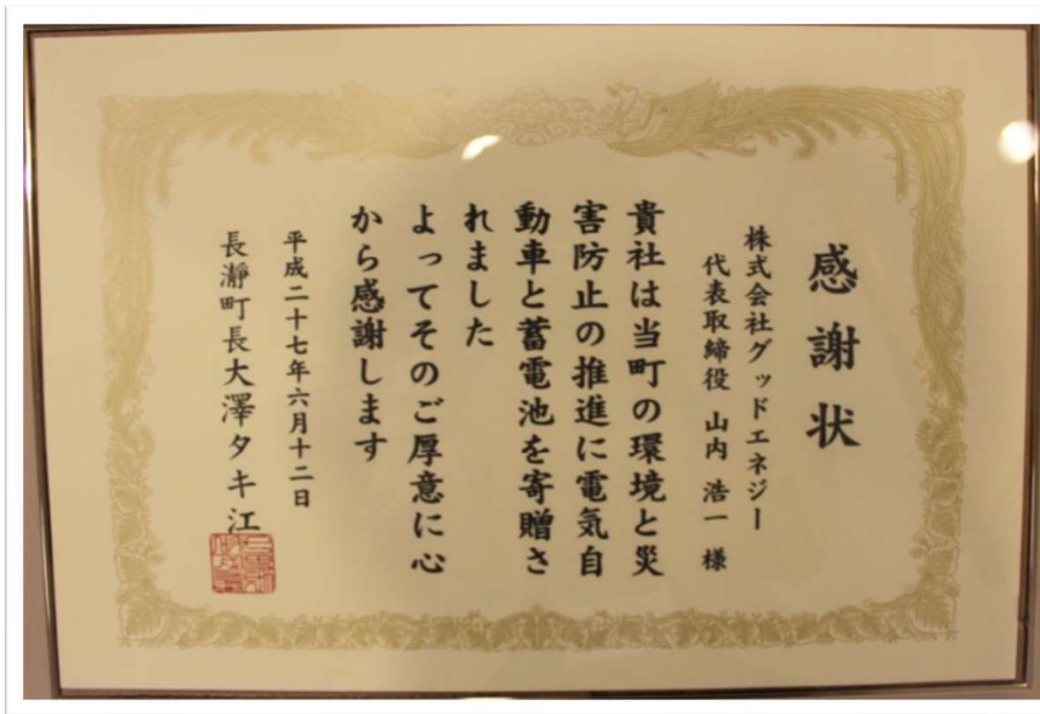 感謝状
株式会社グッドエネジー
代表取締役 山内 浩一 様
貴社は当町の環境と災
害防止の推進に電気自
動車と蓄電池を寄贈さ
れました
よってそのご厚意に心
から感謝します
平成二十七年六月十二日
長瀞町長大澤タキ江